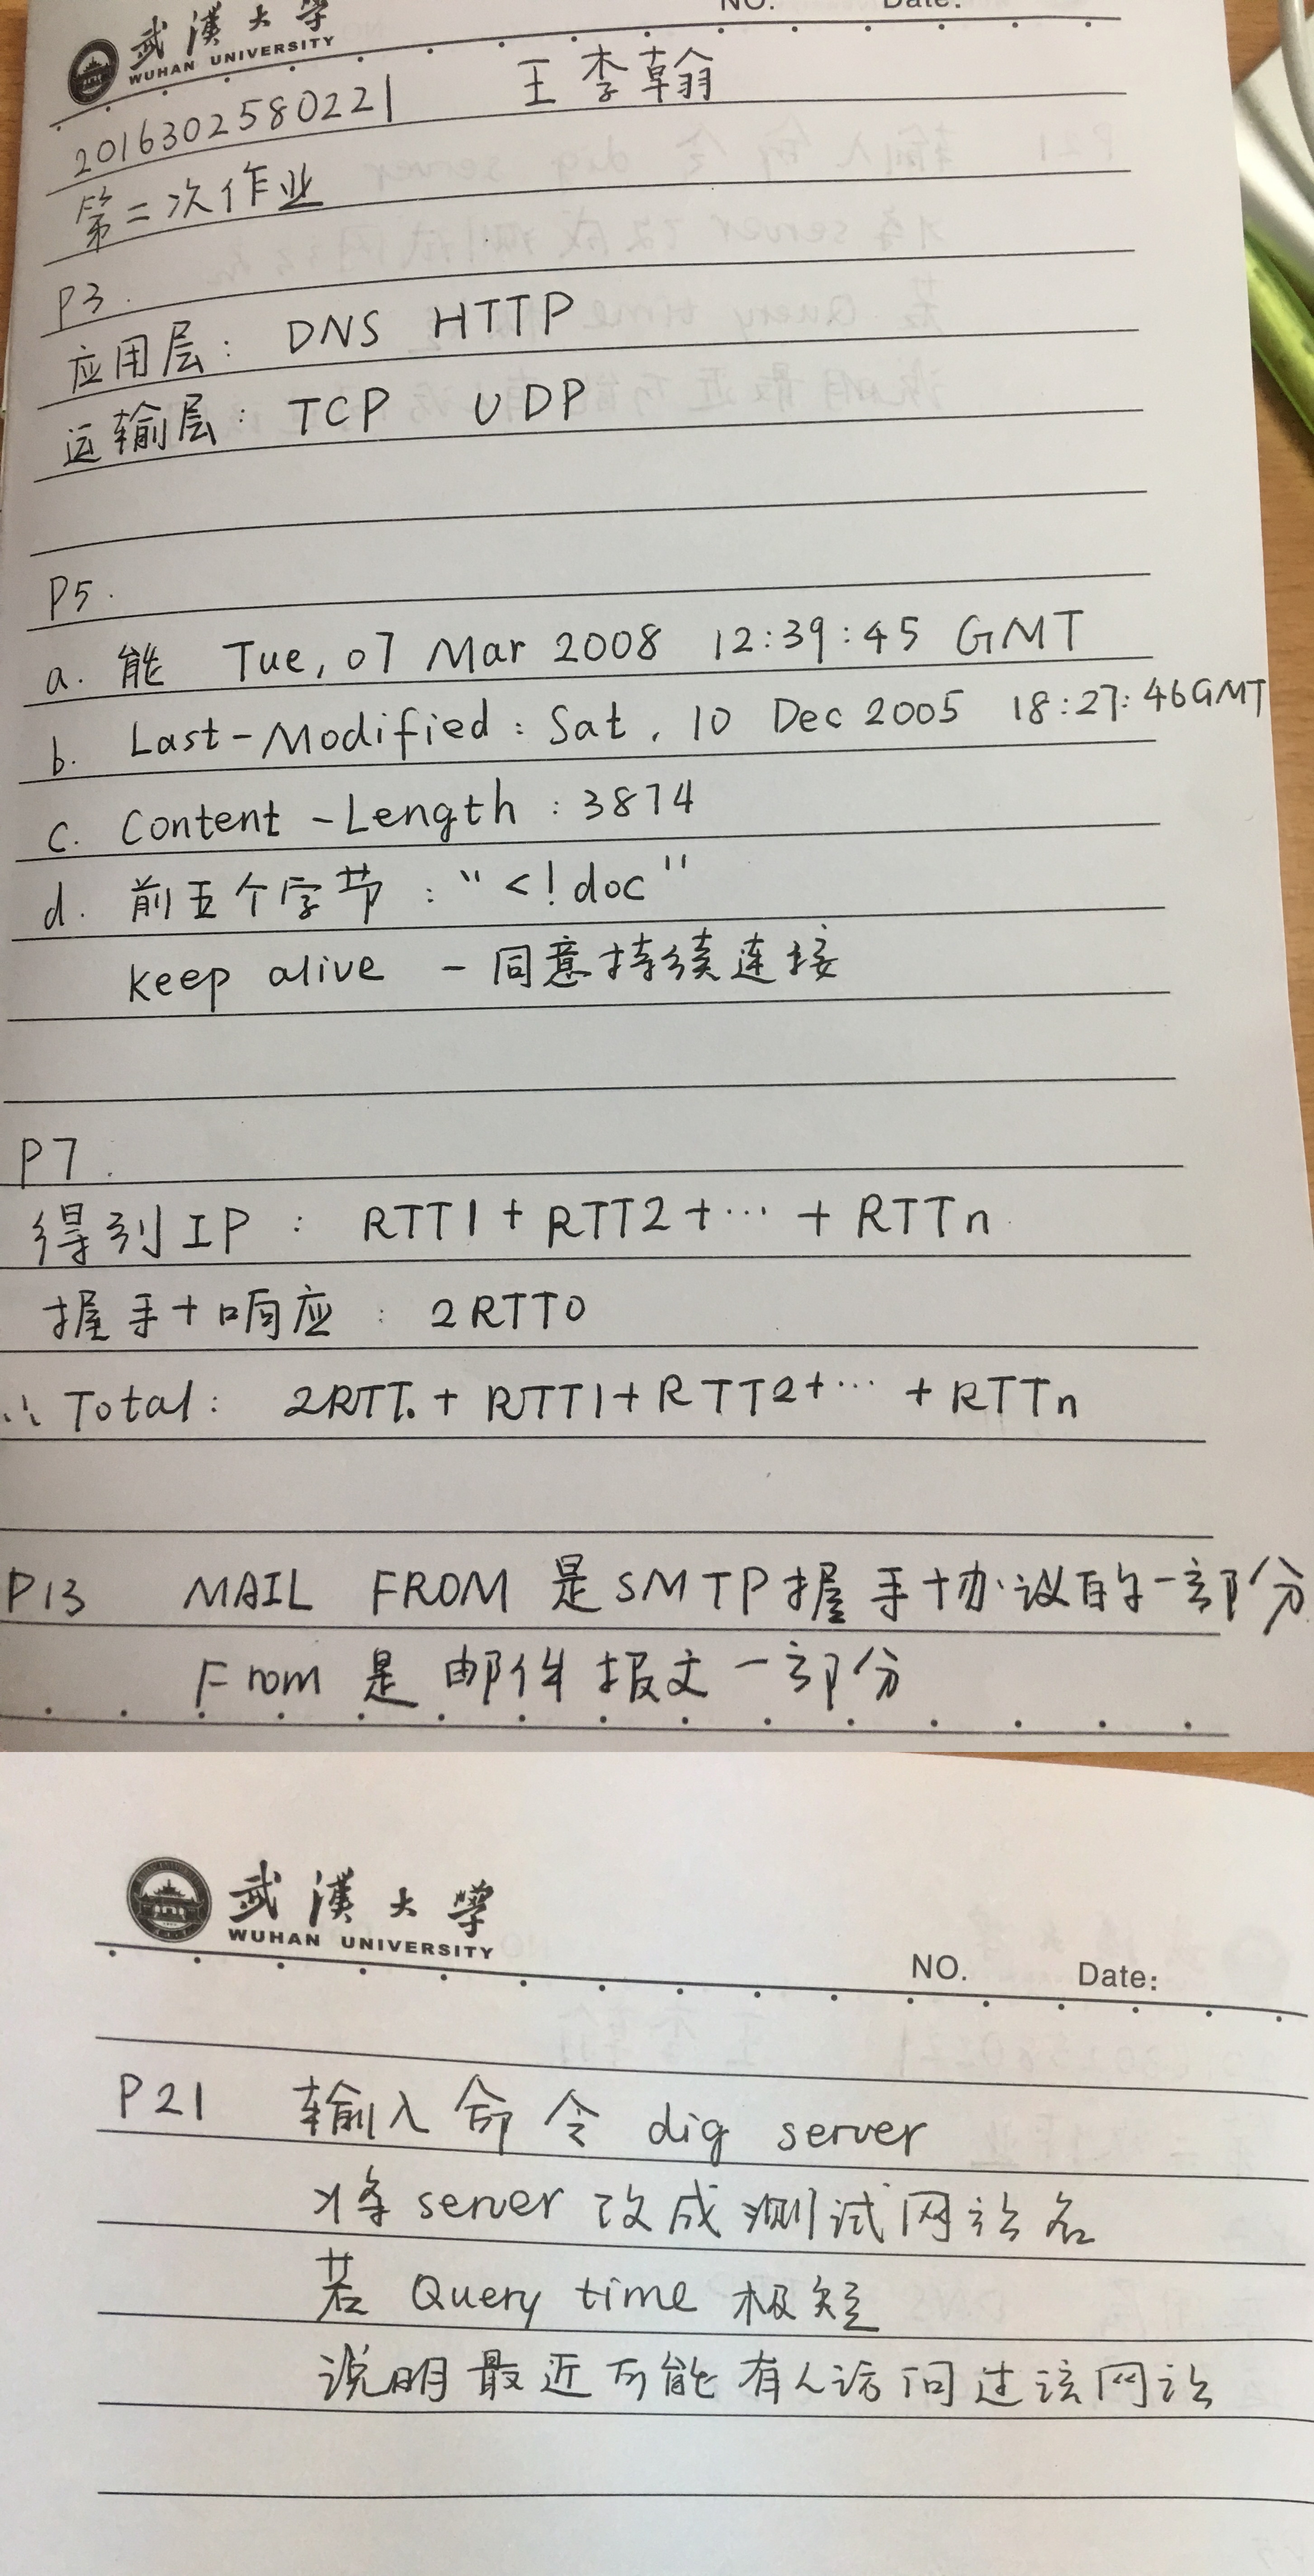 武漢大學
WUHAN UNIVERSITY
NO. Date:
2016302580221 王李翰
第二次作业
P3.
应用层: DNS HTTP
运输层: TCP UDP
P5.
a. 能 Tue, 07 Mar 2008 12:39:45 GMT
b. Last-Modified: Sat, 10 Dec 2005 18:27:46GMT
c. Content-Length: 3874
d. 前五个字节: "<!doc"
keep alive - 同意持续连接
P7.
得到IP: RTT1+RTT2+…+RTTn
握手+响应: 2RTT0
∴Total: 2RTT0+RTT1+RTT2+…+RTTn
P13 MAIL FROM 是SMTP握手协议的一部分
From 是邮件报文一部分
武漢大學
WUHAN UNIVERSITY
NO. Date:
P21 输入命令 dig server
将server改成测试网站名
若 Query time 极短
说明最近可能有人访问过该网站